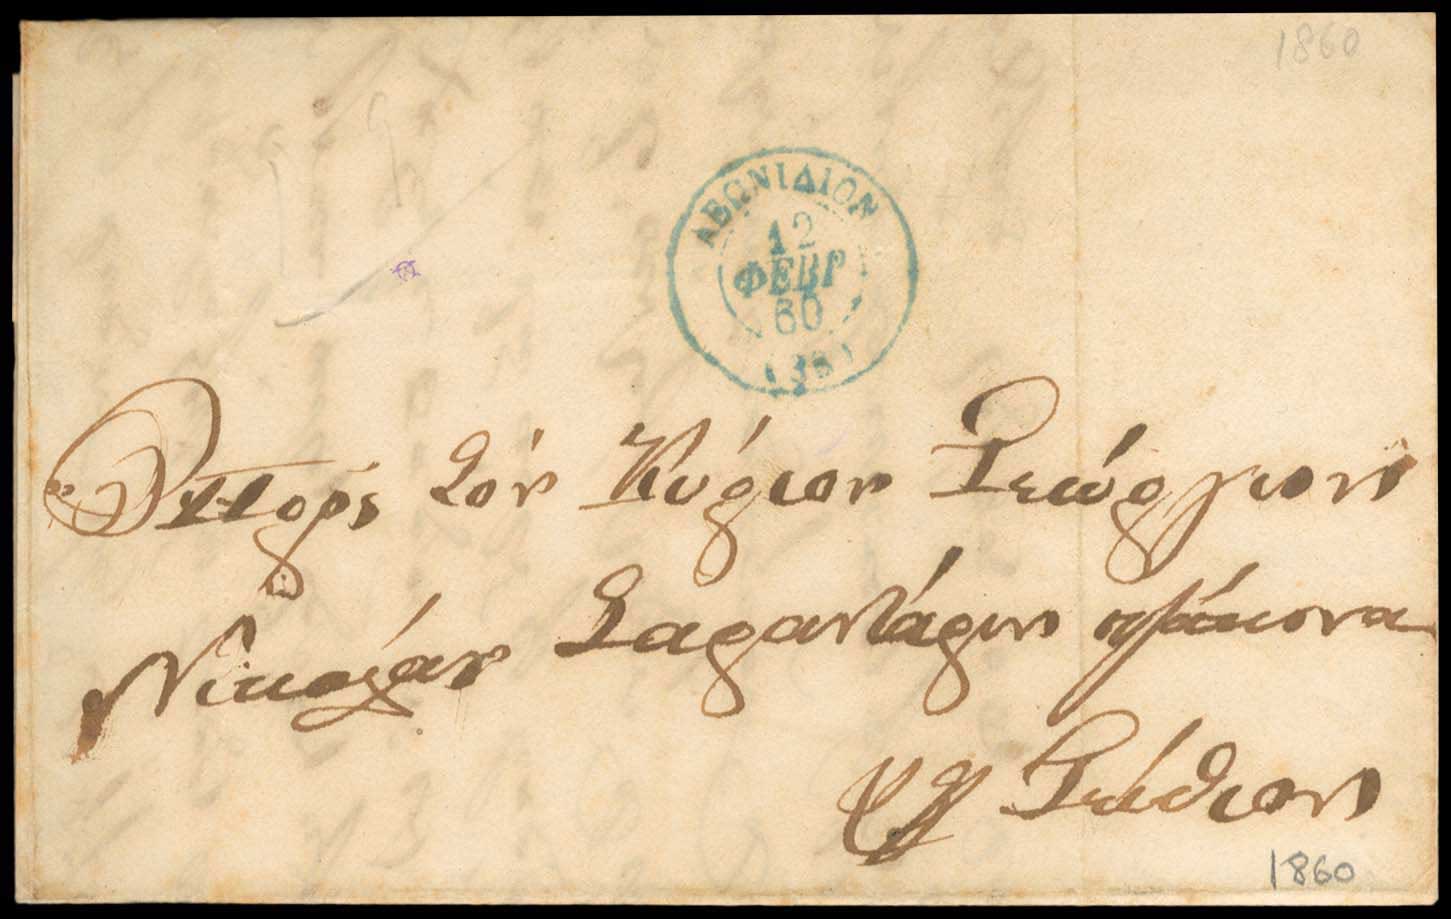 1860
ΛΕΩΝΙΔΙΟΝ
12
ΦΕΒΡ
60
(38)
Πρὸς τὸν Κύριον Γεώργιον
Νικολάου Σαραντάρην
Γύθιον
1860